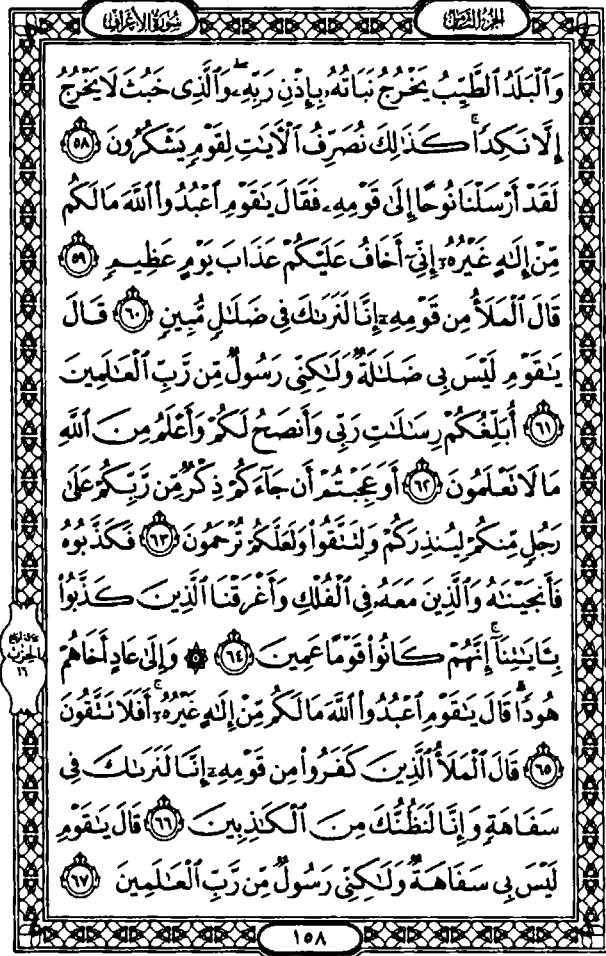 الجزء الثامن
سورة الأعراف
وَٱلۡبَلَدُ ٱلطَّيِّبُ يَخۡرُجُ نَبَاتُهُۥ بِإِذۡنِ رَبِّهِۦۖ وَٱلَّذِى خَبُثَ لَا يَخۡرُجُ
إِلَّا نَكِدٗاۚ كَذَٰلِكَ نُصَرِّفُ ٱلۡأٓيَٰتِ لِقَوۡمٖ يَشۡكُرُونَ ٥٨
لَقَدۡ أَرۡسَلۡنَا نُوحًا إِلَىٰ قَوۡمِهِۦ فَقَالَ يَٰقَوۡمِ ٱعۡبُدُواْ ٱللَّهَ مَا لَكُم
مِّنۡ إِلَٰهٍ غَيۡرُهُۥٓ إِنِّىٓ أَخَافُ عَلَيۡكُمۡ عَذَابَ يَوۡمٍ عَظِيمٖ ٥٩
قَالَ ٱلۡمَلَأُ مِن قَوۡمِهِۦٓ إِنَّا لَنَرَىٰكَ فِى ضَلَٰلٖ مُّبِينٖ ٦٠ قَالَ
يَٰقَوۡمِ لَيۡسَ بِى ضَلَٰلَةٞ وَلَٰكِنِّى رَسُولٞ مِّن رَّبِّ ٱلۡعَٰلَمِينَ
٦١ أُبَلِّغُكُمۡ رِسَٰلَٰتِ رَبِّى وَأَنصَحُ لَكُمۡ وَأَعۡلَمُ مِنَ ٱللَّهِ
مَا لَا تَعۡلَمُونَ ٦٢ أَوَعَجِبۡتُمۡ أَن جَآءَكُمۡ ذِكۡرٞ مِّن رَّبِّكُمۡ عَلَىٰ
رَجُلٖ مِّنكُمۡ لِيُنذِرَكُمۡ وَلِتَتَّقُواْ وَلَعَلَّكُمۡ تُرۡحَمُونَ ٦٣ فَكَذَّبُوهُ
فَأَنجَيۡنَٰهُ وَٱلَّذِينَ مَعَهُۥ فِى ٱلۡفُلۡكِ وَأَغۡرَقۡنَا ٱلَّذِينَ كَذَّبُواْ
بِـَٔايَٰتِنَآۚ إِنَّهُمۡ كَانُواْ قَوۡمًا عَمِينَ ٦٤ ۞ وَإِلَىٰ عَادٍ أَخَاهُمۡ
هُودٗاۚ قَالَ يَٰقَوۡمِ ٱعۡبُدُواْ ٱللَّهَ مَا لَكُم مِّنۡ إِلَٰهٍ غَيۡرُهُۥٓۚ أَفَلَا تَتَّقُونَ
٦٥ قَالَ ٱلۡمَلَأُ ٱلَّذِينَ كَفَرُواْ مِن قَوۡمِهِۦٓ إِنَّا لَنَرَىٰكَ فِى
سَفَاهَةٖ وَإِنَّا لَنَظُنُّكَ مِنَ ٱلۡكَٰذِبِينَ ٦٦ قَالَ يَٰقَوۡمِ
لَيۡسَ بِى سَفَاهَةٞ وَلَٰكِنِّى رَسُولٞ مِّن رَّبِّ ٱلۡعَٰلَمِينَ ٦٧
الحزب
١٦
١٥٨